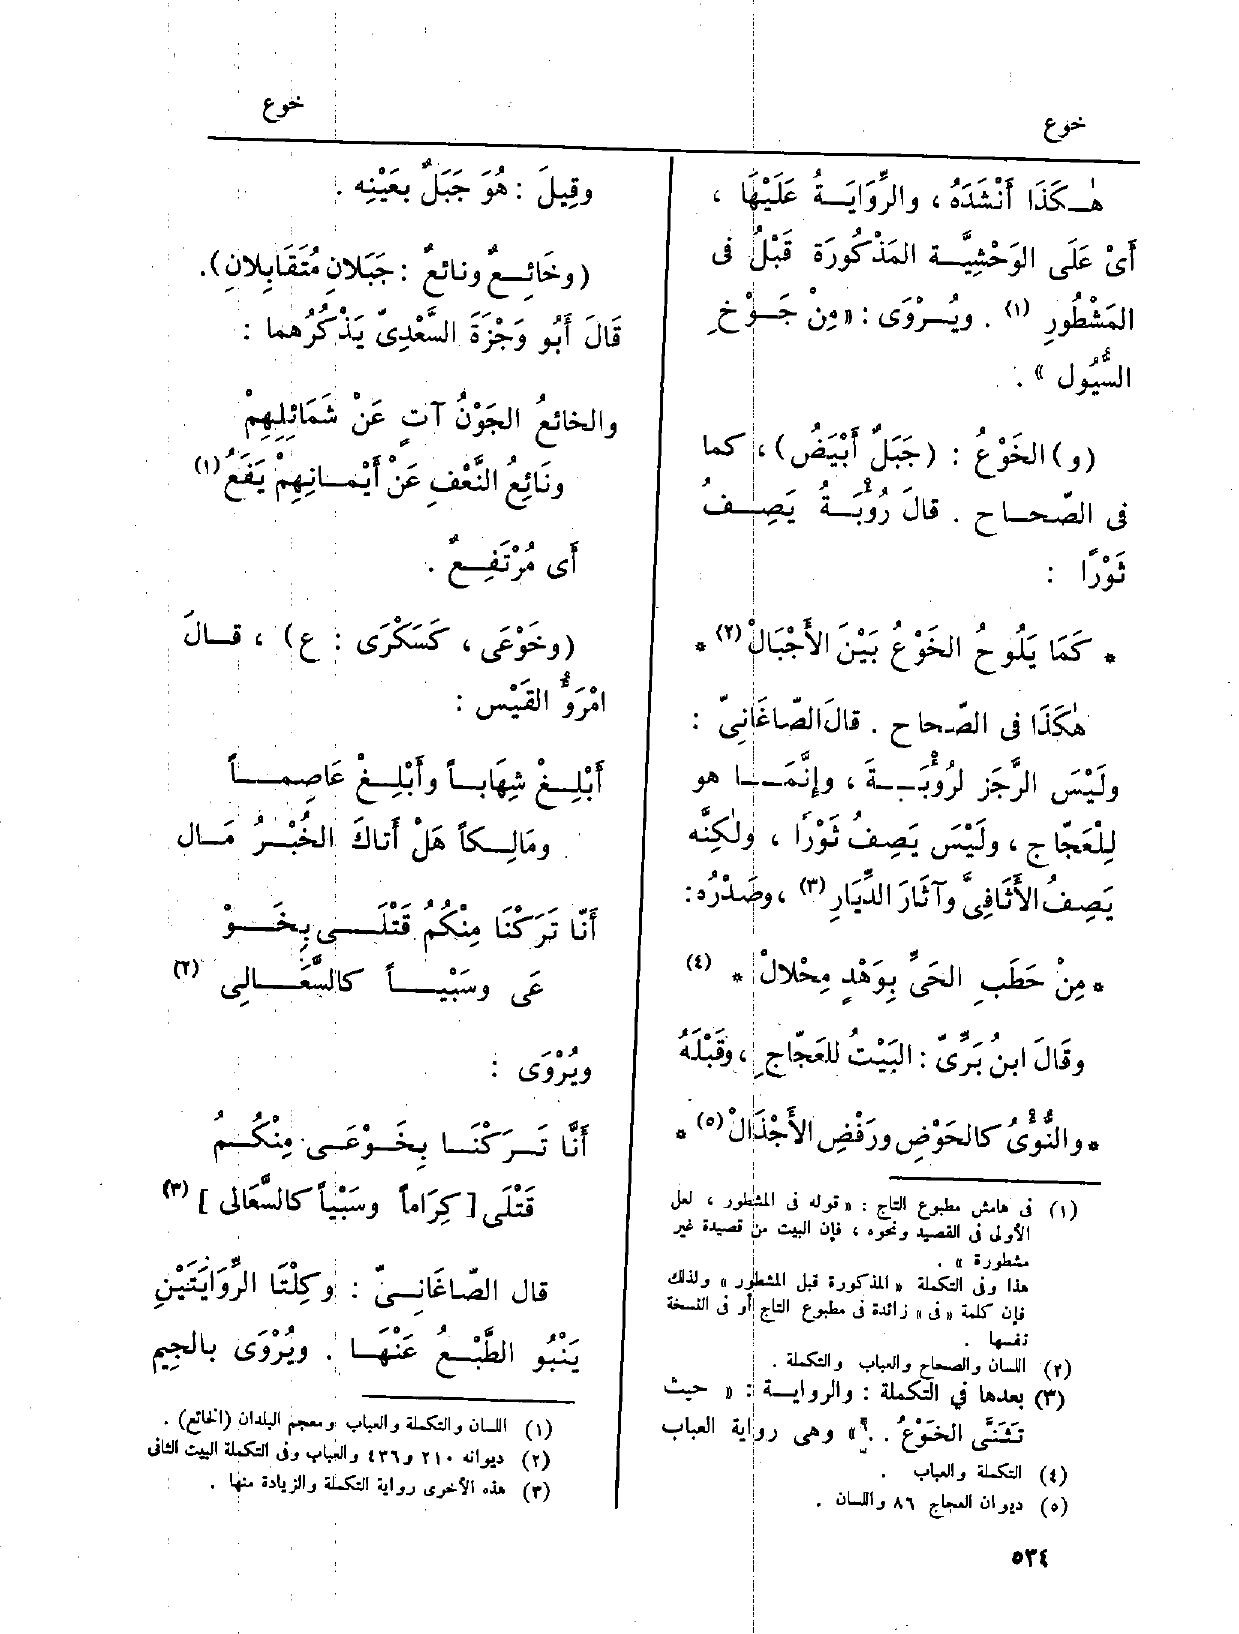 خوع
خوع
هٰكَذَا أَنْشَدَهُ ، والرِّوَايَةُ عَلَيْهَا ،
أَىْ عَلَى الوَحْشِيَّة المَذْكُورَة قَبْلُ فى
المَشْطُورِ (١) . ويُرْوَى : «مِنْ جَوْخِ
السُّيُول » .
(و) الخَوْعُ : (جَبَلٌ أَبْيَضُ) ، كما
فى الصّحاح . قالَ رُؤْبَةُ يَصِفُ
ثَوْرًا :
* كَمَا يَلُوحُ الخَوْعُ بَيْنَ الأَجْبَالْ (٢) *
هٰكَذَا فى الصّحاح . قالَ الصّاغَانِىّ :
ولَيْسَ الرَّجَز لِرُؤْبَةَ ، وإِنَّمَا هو
لِلْعَجّاج ، ولَيْسَ يَصِفُ ثَوْرًا ، ولٰكِنَّه
يَصِفُ الأَثَافِىَّ وآثَارَ الدِّيَارِ (٣) ، وصَدْرُه :
* مِنْ حَطَبِ الحَىِّ بِوَهْدٍ مِحْلالْ * (٤)
وقَالَ ابنُ بَرِّىّ : البَيْتُ للعَجّاجِ ، وقَبْلَهُ
* والنُّؤْىُ كالحَوْضِ ورَفْضِ الأَجْذَالْ (٥) *
(١) فى هامش مطبوع التاج : «قوله فى المشطور ، لعل
الأولى فى القصيد ونحوه ، فإن البيت من قصيدة غير
مشطورة » .
هذا وفى التكملة « المذكورة قبل المشطور » ولذلك
فإن كلمة « فى » زائدة فى مطبوع التاج أو فى النسخة
نفسها .
(٢) اللسان والصحاح والعباب والتكملة .
(٣) بعدها في التكملة : والرواية : « حيث
تَثَنَّى الخَوْعُ . . » وهى رواية العباب
(٤) التكملة والعباب .
(٥) ديوان العجاج ٨٦ واللسان .
وقِيلَ : هُوَ جَبَلٌ بعَيْنِه .
(وخَائِعٌ ونائعٌ : جَبَلانِ مُتَقَابِلانِ) .
قَالَ أَبُو وَجْزَةَ السَّعْدِىّ يَذْكُرُهما :
والخائعُ الجَوْنُ آتٍ عَنْ شَمَائِلِهِمْ
ونَائِعُ النَّعْفِ عَنْ أَيْمَانِهِمْ يَفَعُ (١)
أَى مُرْتَفِعٌ .
(وخَوْعَى ، كَسَكْرَى : ع) ، قالَ
امْرَؤُ القَيْس :
أَبْلِغْ شِهَاباً وأَبْلِغْ عَاصِماً
ومَالِكاً هَلْ أَتاكَ الخُبْرُ مَال
أَنّا تَرَكْنَا مِنْكُم قَتْلَى بِخَوْ
عَى وسَبْياً كالسَّعَالِى (٢)
ويُرْوَى :
أَنَّا تَرَكْنَا بِخَوْعَى مِنْكُمُ
قَتْلَى [ كِرَاماً وسَبْياً كالسَّعَالى ] (٣)
قال الصّاغَانِىّ : وكِلْتَا الرِّوَايَتَيْنِ
يَنْبُو الطَّبْعُ عَنْهَا . ويُرْوَى بالجِيم
(١) اللسان والتكملة والعباب ومعجم البلدان (الخائع) .
(٢) ديوانه ٢١٠ و٤٣٦ والعباب وفى التكملة البيت الثانى
(٣) هذه الأخرى رواية التكملة والزيادة منها .
٥٣٤